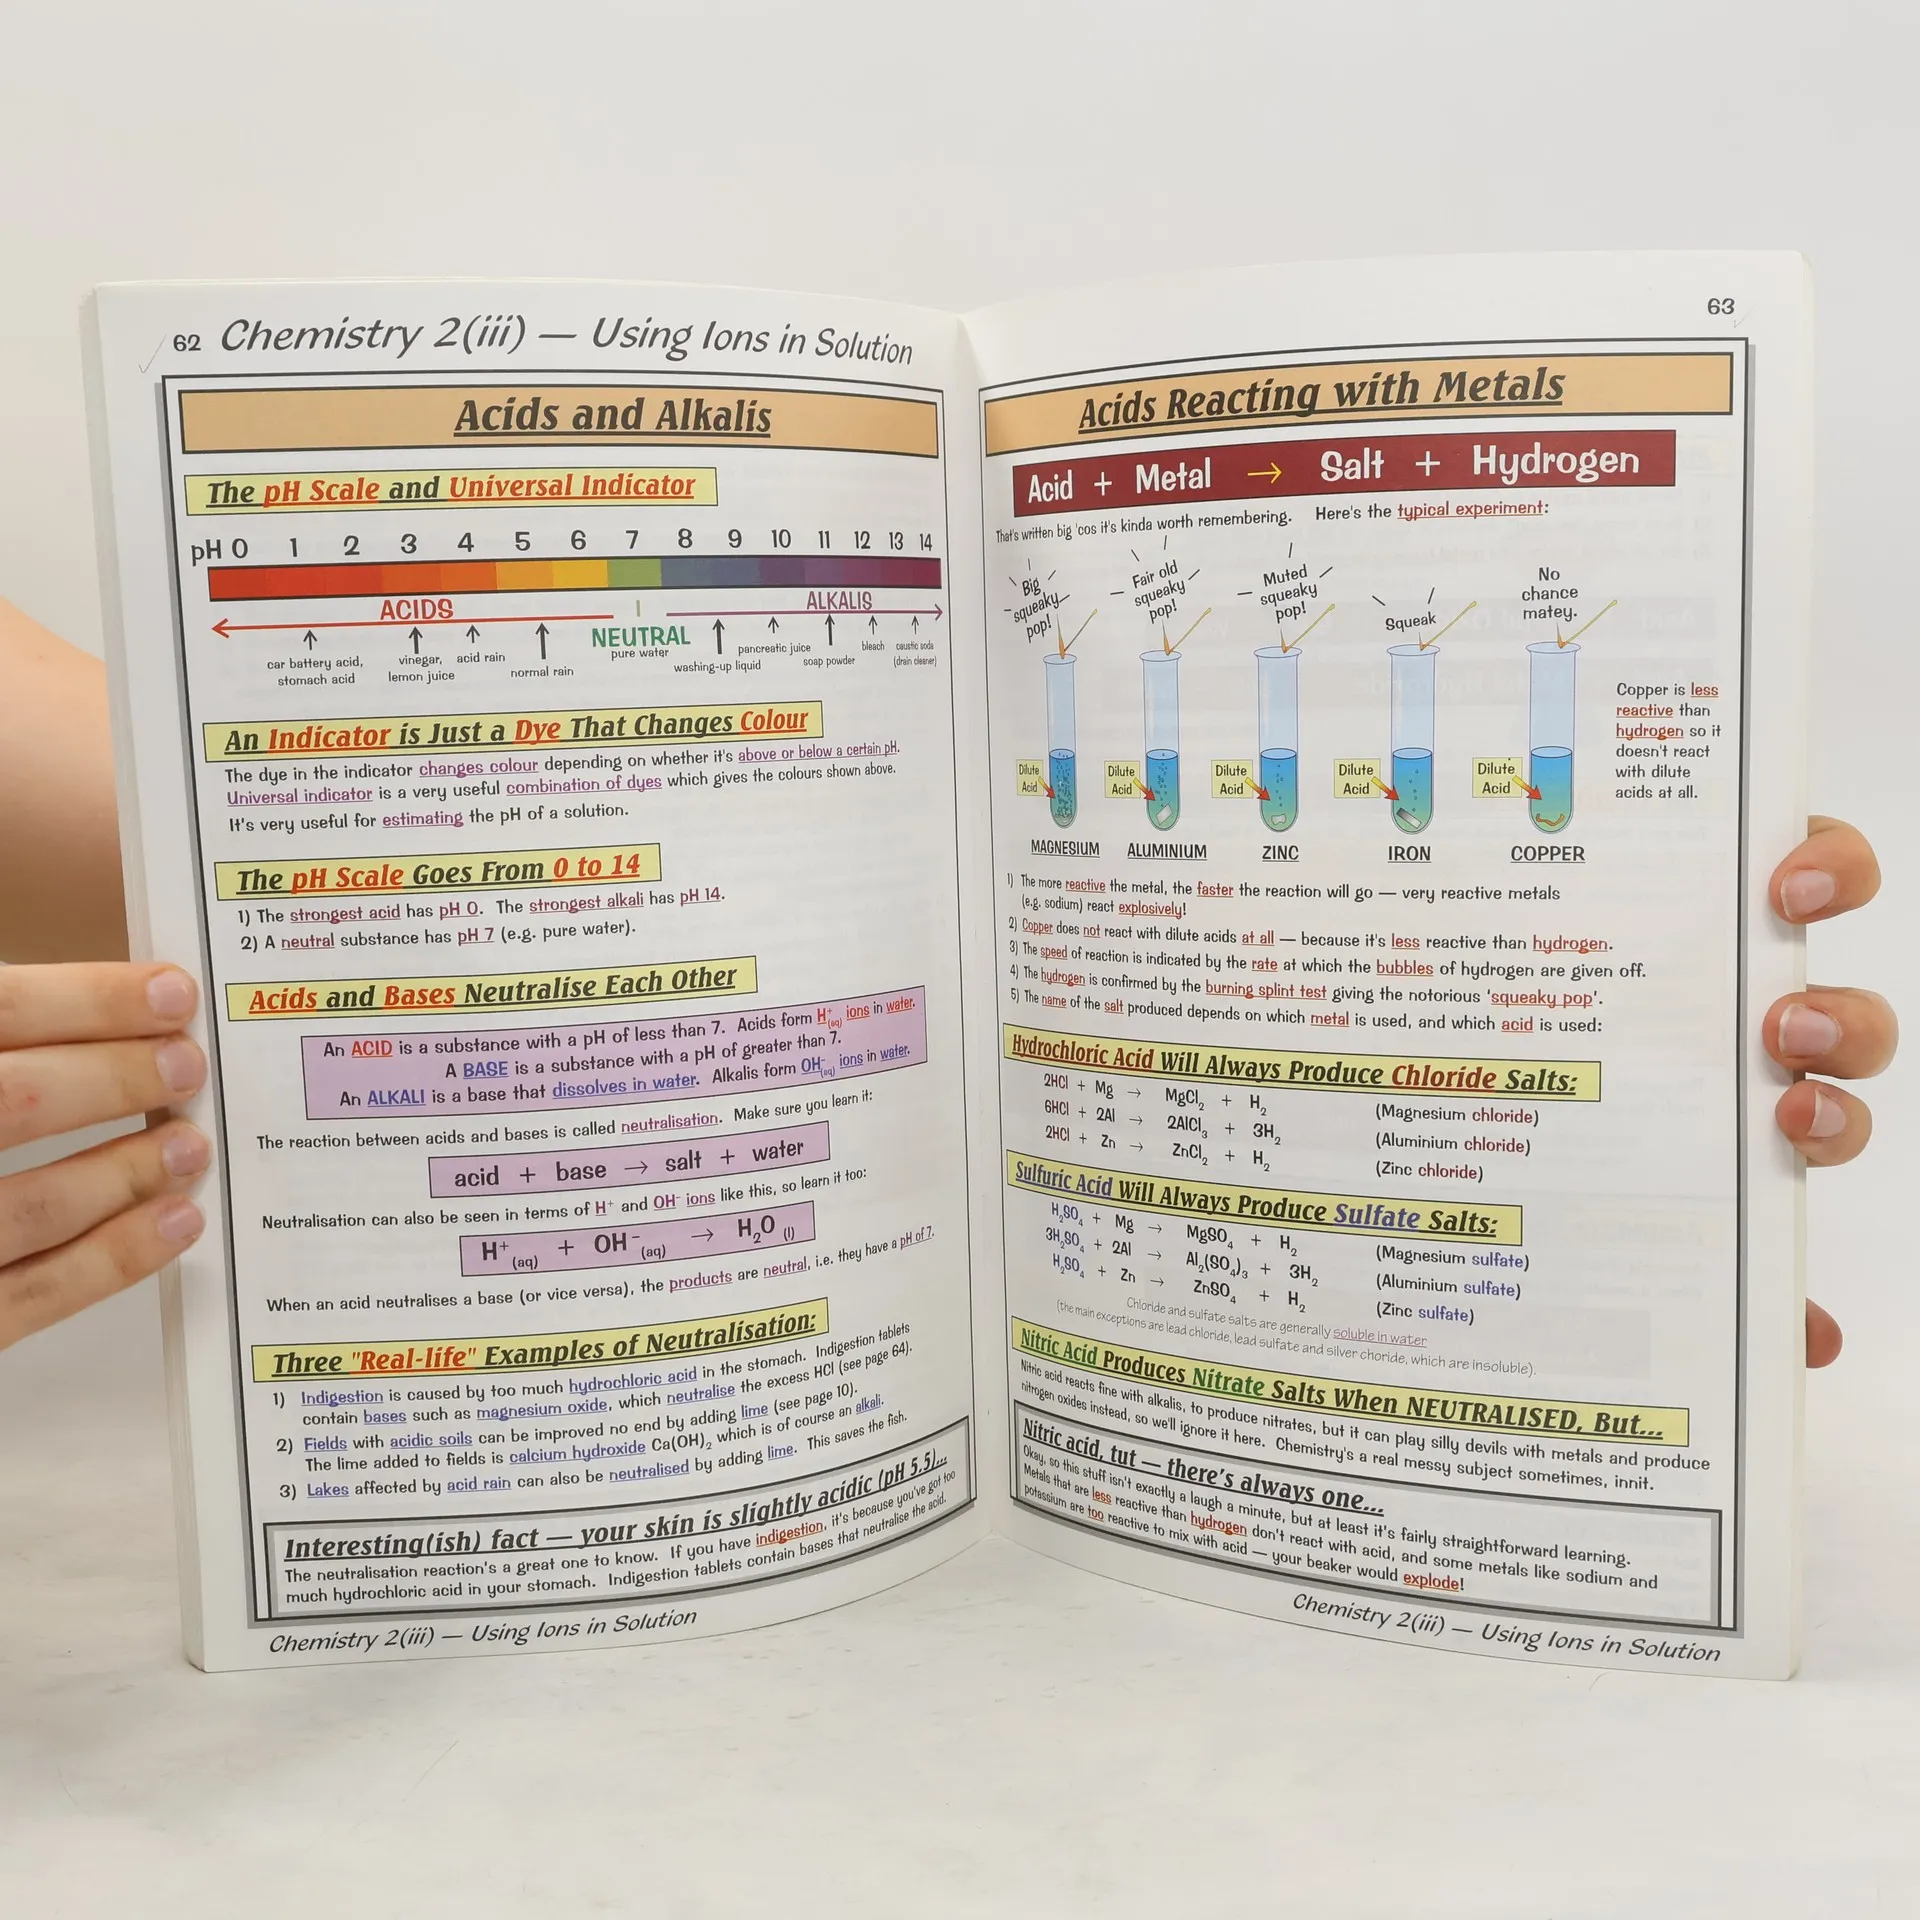 62 Chemistry 2(iii) — Using Ions in Solution
Acids and Alkalis
The pH Scale and Universal Indicator
pH 0 1 2 3 4 5 6 7 8 9 10 11 12 13 14
ACIDS
ALKALIS
NEUTRAL
pure water
car battery acid,
stomach acid
vinegar,
lemon juice
acid rain
normal rain
washing-up liquid
pancreatic juice
soap powder
bleach
caustic soda
(drain cleaner)
An Indicator is Just a Dye That Changes Colour
The dye in the indicator changes colour depending on whether it's above or below a certain pH.
Universal indicator is a very useful combination of dyes which gives the colours shown above.
It's very useful for estimating the pH of a solution.
The pH Scale Goes From 0 to 14
1) The strongest acid has pH 0. The strongest alkali has pH 14.
2) A neutral substance has pH 7 (e.g. pure water).
Acids and Bases Neutralise Each Other
An ACID is a substance with a pH of less than 7. Acids form H⁺(aq) ions in water.
A BASE is a substance with a pH of greater than 7.
An ALKALI is a base that dissolves in water. Alkalis form OH⁻(aq) ions in water.
The reaction between acids and bases is called neutralisation. Make sure you learn it:
acid + base → salt + water
Neutralisation can also be seen in terms of H⁺ and OH⁻ ions like this, so learn it too:
H⁺(aq) + OH⁻(aq) → H₂O (l)
When an acid neutralises a base (or vice versa), the products are neutral, i.e. they have a pH of 7.
Three "Real-life" Examples of Neutralisation:
1) Indigestion is caused by too much hydrochloric acid in the stomach. Indigestion tablets
contain bases such as magnesium oxide, which neutralise the excess HCl (see page 64).
2) Fields with acidic soils can be improved no end by adding lime (see page 10).
The lime added to fields is calcium hydroxide Ca(OH)₂ which is of course an alkali.
3) Lakes affected by acid rain can also be neutralised by adding lime. This saves the fish.
Interesting(ish) fact — your skin is slightly acidic (pH 5.5)...
The neutralisation reaction's a great one to know. If you have indigestion, it's because you've got too
much hydrochloric acid in your stomach. Indigestion tablets contain bases that neutralise the acid.
Chemistry 2(iii) — Using Ions in Solution
63
Acids Reacting with Metals
Acid + Metal → Salt + Hydrogen
That's written big 'cos it's kinda worth remembering. Here's the typical experiment:
Big
squeaky
pop!
Fair old
squeaky
pop!
Muted
squeaky
pop!
Squeak
No
chance
matey.
Dilute
Acid
Dilute
Acid
Dilute
Acid
Dilute
Acid
Dilute
Acid
Copper is less
reactive than
hydrogen so it
doesn't react
with dilute
acids at all.
MAGNESIUM ALUMINIUM ZINC IRON COPPER
1) The more reactive the metal, the faster the reaction will go — very reactive metals
(e.g. sodium) react explosively!
2) Copper does not react with dilute acids at all — because it's less reactive than hydrogen.
3) The speed of reaction is indicated by the rate at which the bubbles of hydrogen are given off.
4) The hydrogen is confirmed by the burning splint test giving the notorious 'squeaky pop'.
5) The name of the salt produced depends on which metal is used, and which acid is used:
Hydrochloric Acid Will Always Produce Chloride Salts:
2HCl + Mg → MgCl₂ + H₂ (Magnesium chloride)
6HCl + 2Al → 2AlCl₃ + 3H₂ (Aluminium chloride)
2HCl + Zn → ZnCl₂ + H₂ (Zinc chloride)
Sulfuric Acid Will Always Produce Sulfate Salts:
H₂SO₄ + Mg → MgSO₄ + H₂ (Magnesium sulfate)
3H₂SO₄ + 2Al → Al₂(SO₄)₃ + 3H₂ (Aluminium sulfate)
H₂SO₄ + Zn → ZnSO₄ + H₂ (Zinc sulfate)
Chloride and sulfate salts are generally soluble in water
(the main exceptions are lead chloride, lead sulfate and silver choride, which are insoluble).
Nitric Acid Produces Nitrate Salts When NEUTRALISED, But...
Nitric acid reacts fine with alkalis, to produce nitrates, but it can play silly devils with metals and produce
nitrogen oxides instead, so we'll ignore it here. Chemistry's a real messy subject sometimes, innit.
Nitric acid, tut — there's always one...
Okay, so this stuff isn't exactly a laugh a minute, but at least it's fairly straightforward learning.
Metals that are less reactive than hydrogen don't react with acid, and some metals like sodium and
potassium are too reactive to mix with acid — your beaker would explode!
Chemistry 2(iii) — Using Ions in Solution